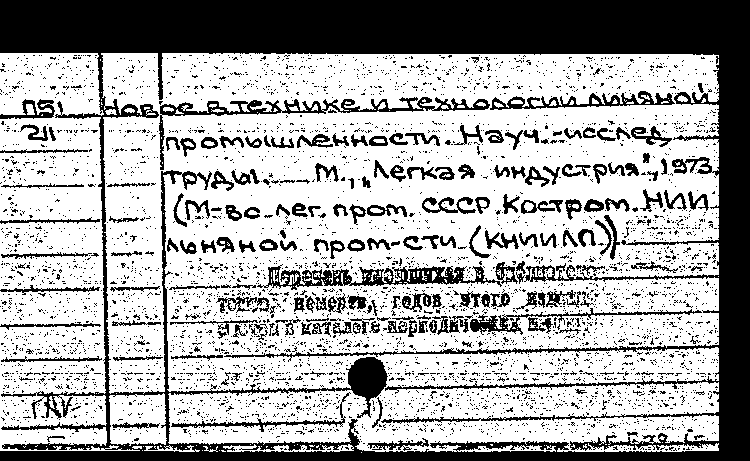 П51 Новое в технике и технологии линяной
211
промышленности. Науч.-исслед.
труды. М., „Легкая индустрия", 1973.
(М-во лег. пром. СССР. Костром. НИИ
льняной пром-сти (КНИИЛП)).
Перечень имеющихся в библиотеке
томов, номеров, годов этого издания
смотри в каталоге периодических изданий